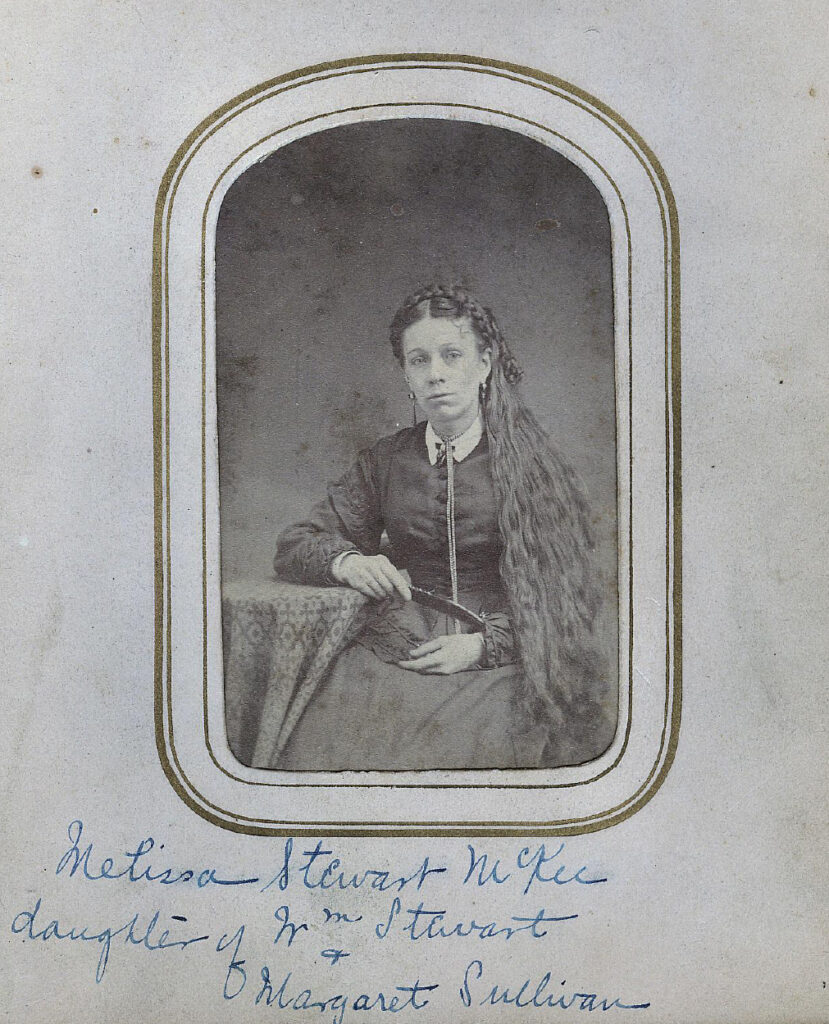 Melissa Stewart McKee
daughter of Wm Stewart
&
Margaret Sullivan